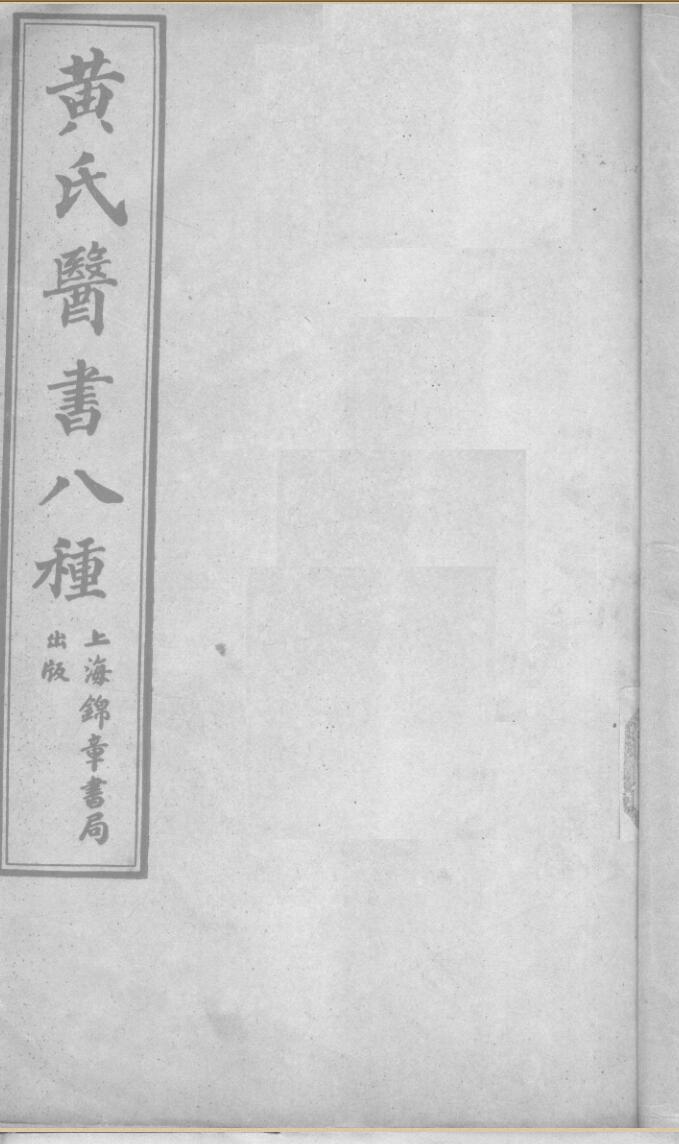 黄氏醫書八種
上海錦章書局
出版